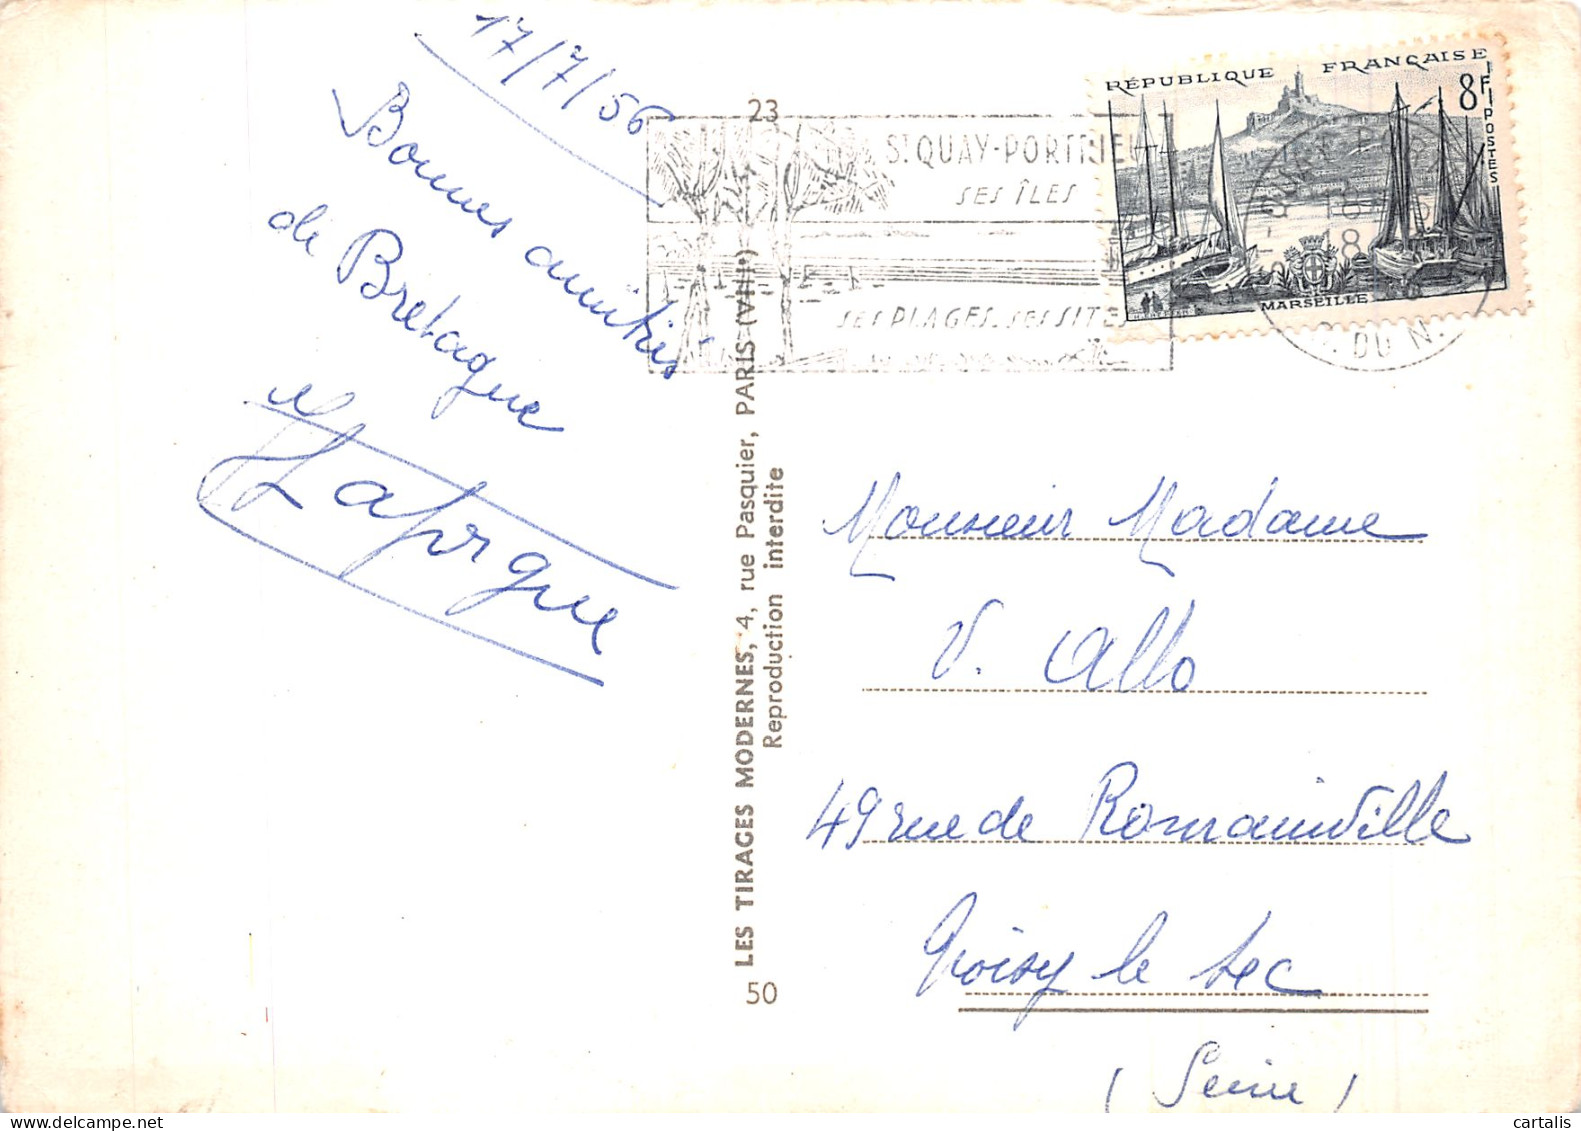 17/7/56
Bonnes amitiés
de Bretagne
Laforgue
23
LES TIRAGES MODERNES, 4, rue Pasquier, PARIS (VIIIe)
Reproduction interdite
50
ST QUAY-PORTRIEUX
SES ÎLES
SES PLAGES. SES SITES
RÉPUBLIQUE FRANÇAISE
8F
POSTES
MARSEILLE
18
C. DU N.
Monsieur Madame
V. Allo
49 rue de Romainville
Noisy le Sec
(Seine)
cartalis